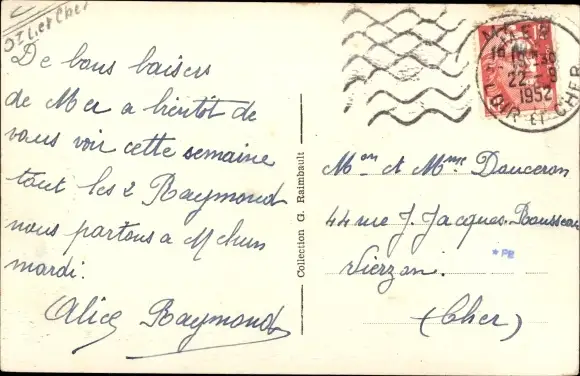 De bons baisers
de Mer a bientôt de
vous voir cette semaine
tout les 2 Raymond
nous partons a Mehun
mardi.
Alice Raymond
Collection G. Raimbault
MER
18 H 30
22 - 9
1952
LOIR ET CHER
Mon et Mme Douceron
44 rue J. Jacques. Rousseau
*PB
Vierzon.
(Cher)